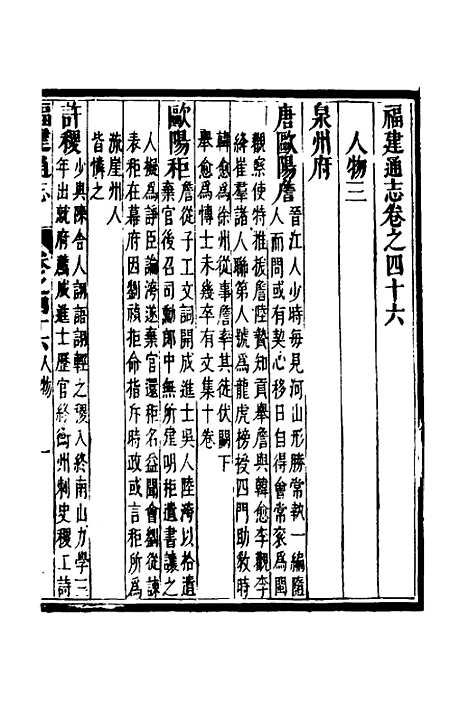 福建通志卷之四十六
人物三
泉州府
唐歐陽詹晉江人少時每見河山形勝常執一編隨
人而問或有契心移日自得會常衮為閩
觀察使特推拔詹陸贄知貢舉詹與韓愈李觀李
絳崔羣諸人聯第人號為龍虎榜授四門助教時
韓愈為徐州從事詹率其徒伏闕下
舉愈為博士未幾卒有文集十卷
歐陽秬詹從子工文詞開成進士吳人陸洿以拾遺
棄官後召司勳郎中無所建明秬遺書讓之
人擬為諍臣論洿遂棄官還秬名益聞會劉從諫
表秬在幕府因劉稹拒命指斥時政或言秬所為
流崖州人
皆憐之
許稷少與陳舍人詡語詡輕之稷入終南山力學三
年出就府薦成進士歷官終衡州刺史稷工詩
福建通志
卷之四十六人物
一